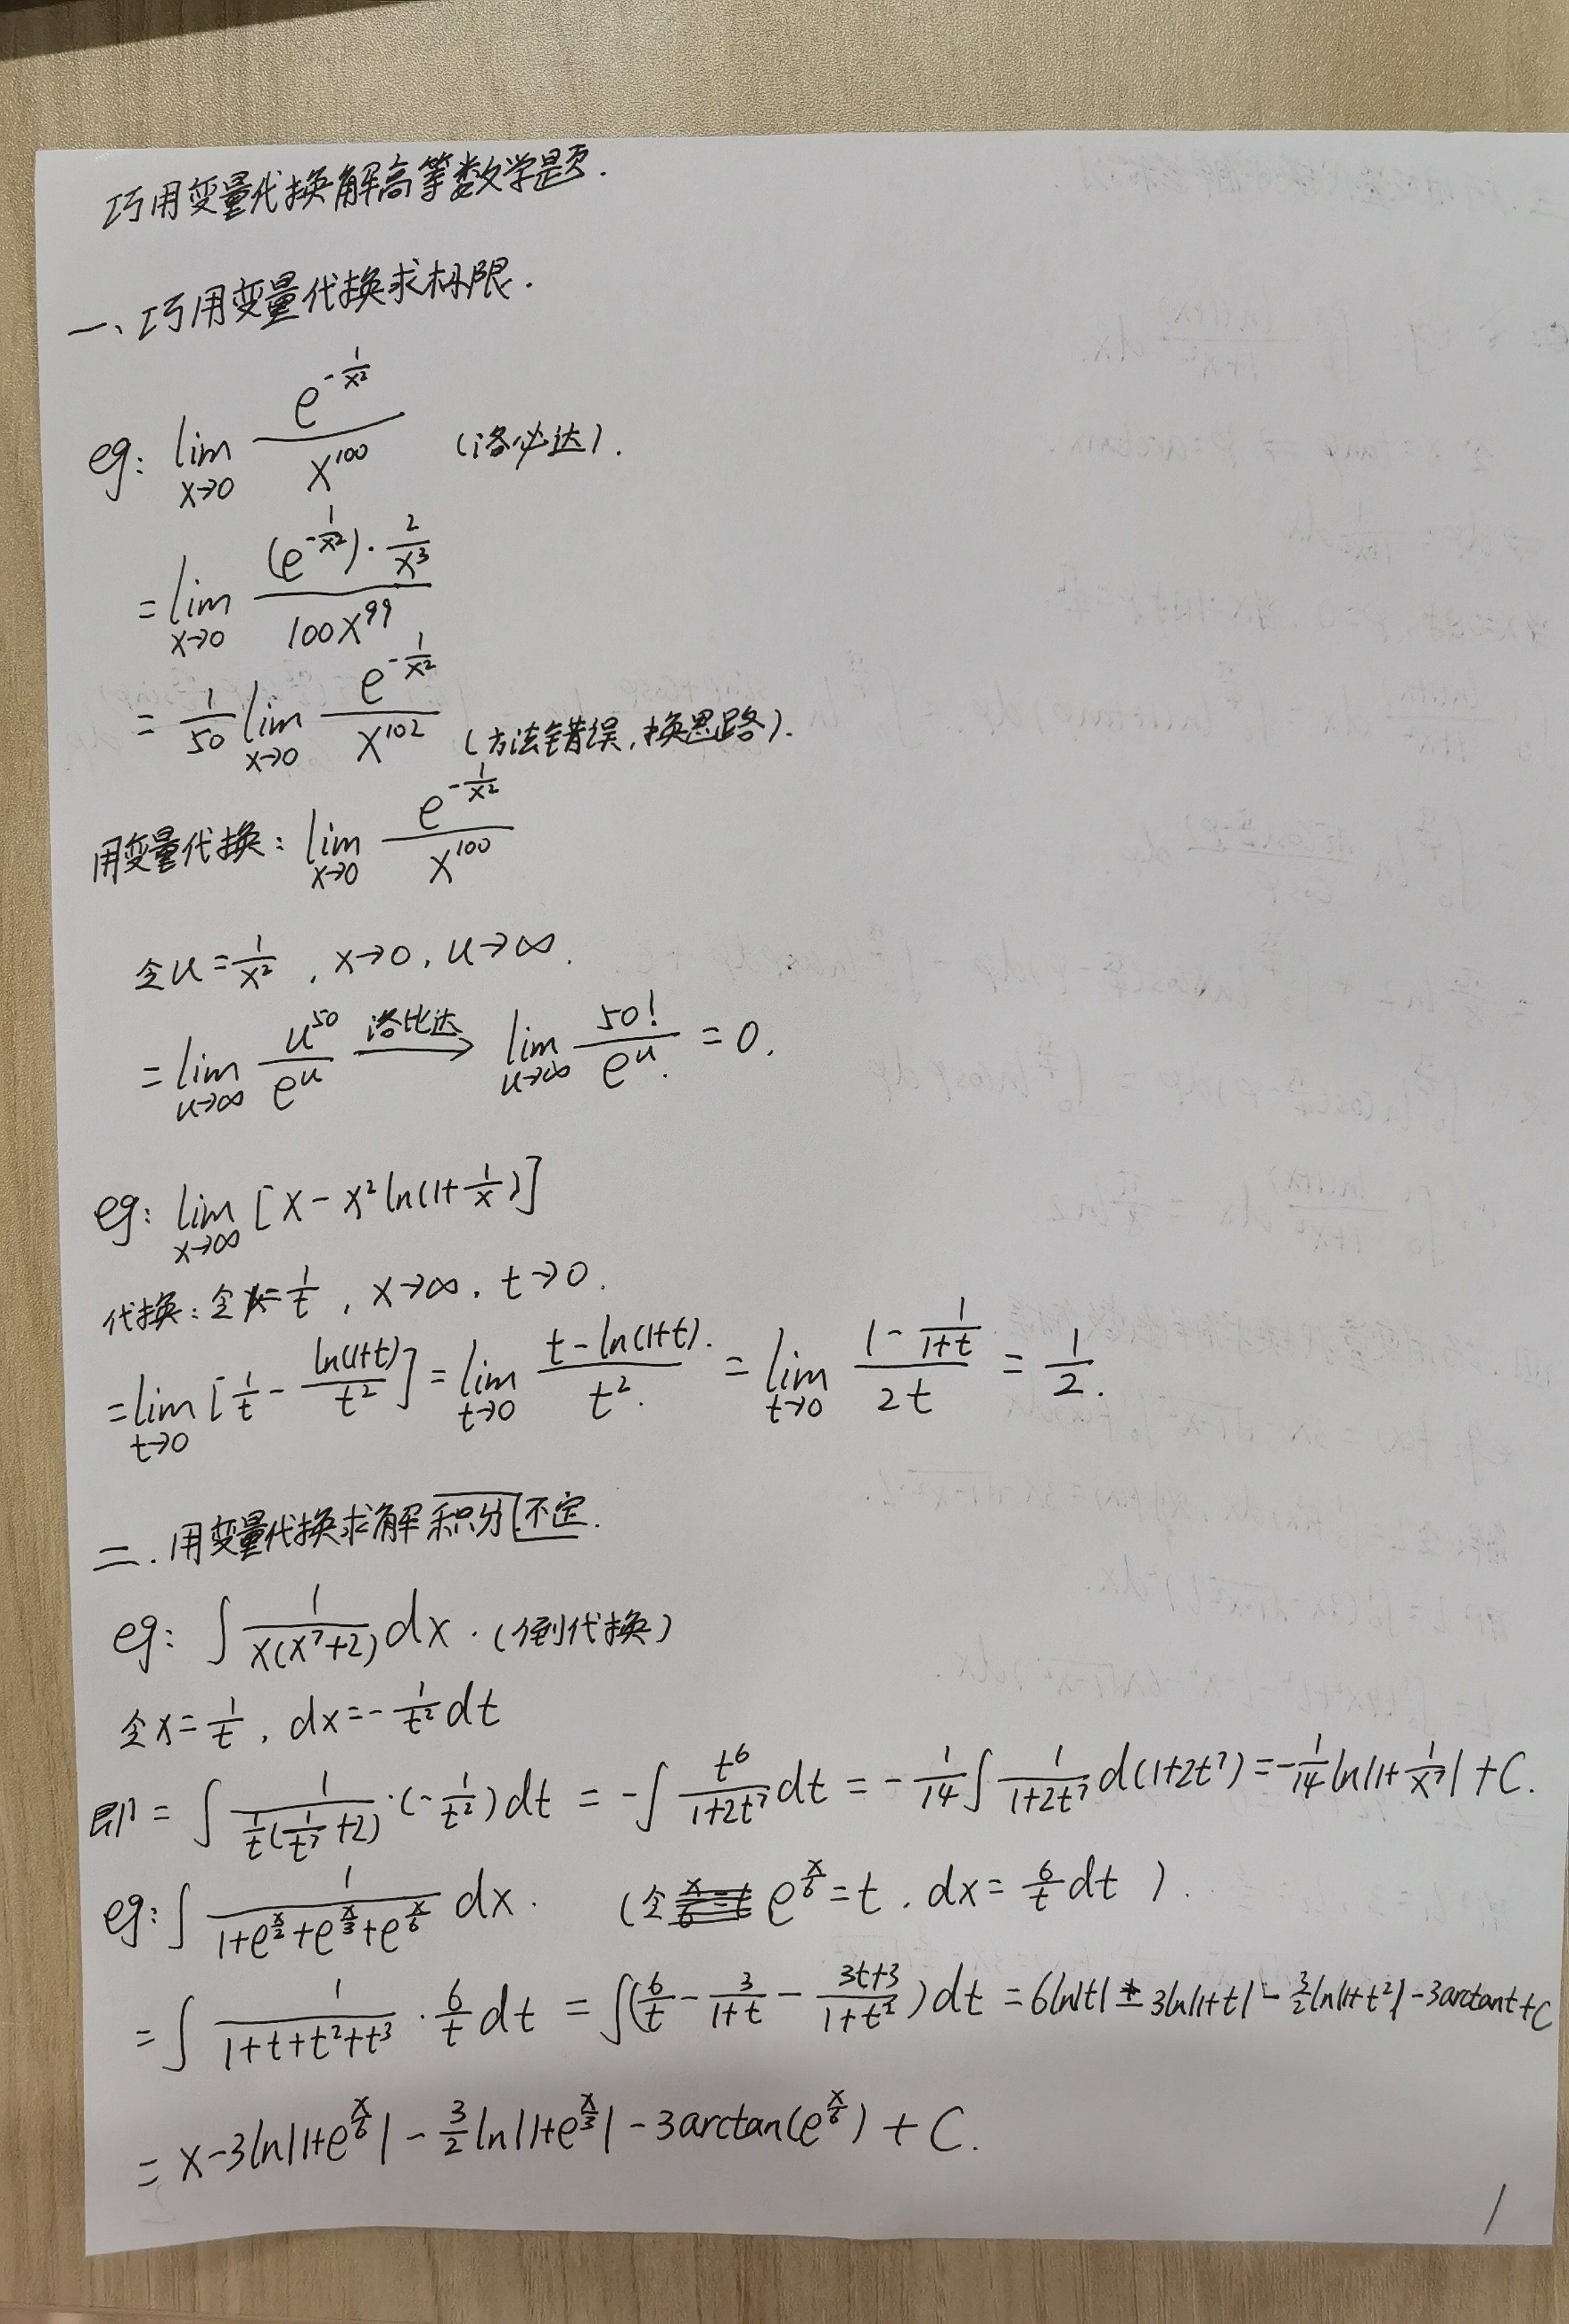 巧用变量代换解高等数学题.
一、巧用变量代换求极限.
eg: lim_{x→0} \frac{e^{-\frac{1}{x^2}}}{x^{100}} (洛必达).
= lim_{x→0} \frac{(e^{-\frac{1}{x^2}})·\frac{2}{x^3}}{100x^{99}}
= \frac{1}{50} lim_{x→0} \frac{e^{-\frac{1}{x^2}}}{x^{102}} (方法错误,换思路).
用变量代换: lim_{x→0} \frac{e^{-\frac{1}{x^2}}}{x^{100}}
令u=\frac{1}{x^2}, x→0, u→∞.
= lim_{u→∞} \frac{u^{50}}{e^u} \xrightarrow{洛比达} lim_{u→∞} \frac{50!}{e^u} = 0.
eg: lim_{x→∞} [x-x^2 ln(1+\frac{1}{x})]
代换: 令x=\frac{1}{t}, x→∞, t→0.
= lim_{t→0} [\frac{1}{t}-\frac{ln(1+t)}{t^2}] = lim_{t→0} \frac{t-ln(1+t)}{t^2} = lim_{t→0} \frac{1-\frac{1}{1+t}}{2t} = \frac{1}{2}.
二. 用变量代换求解积分不定.
eg: ∫\frac{1}{x(x^7+2)}dx. (倒代换)
令x=\frac{1}{t}, dx=-\frac{1}{t^2}dt
即 = ∫\frac{1}{\frac{1}{t}(\frac{1}{t^7}+2)}·(-\frac{1}{t^2})dt = -∫\frac{t^6}{1+2t^7}dt = -\frac{1}{14}∫\frac{1}{1+2t^7}d(1+2t^7) = -\frac{1}{14}ln|1+\frac{1}{x^7}|+C.
eg: ∫\frac{1}{1+e^{\frac{x}{2}}+e^{\frac{x}{3}}+e^{\frac{x}{6}}}dx. (令 e^{\frac{x}{6}}=t, dx=\frac{6}{t}dt).
= ∫\frac{1}{1+t+t^2+t^3}·\frac{6}{t}dt = ∫(\frac{6}{t}-\frac{3}{1+t}-\frac{3t+3}{1+t^2})dt = 6ln|t|-3ln|1+t|-\frac{3}{2}ln|1+t^2|-3arctant+C
= x-3ln|1+e^{\frac{x}{6}}|-\frac{3}{2}ln|1+e^{\frac{x}{3}}|-3arctan(e^{\frac{x}{6}})+C.
1